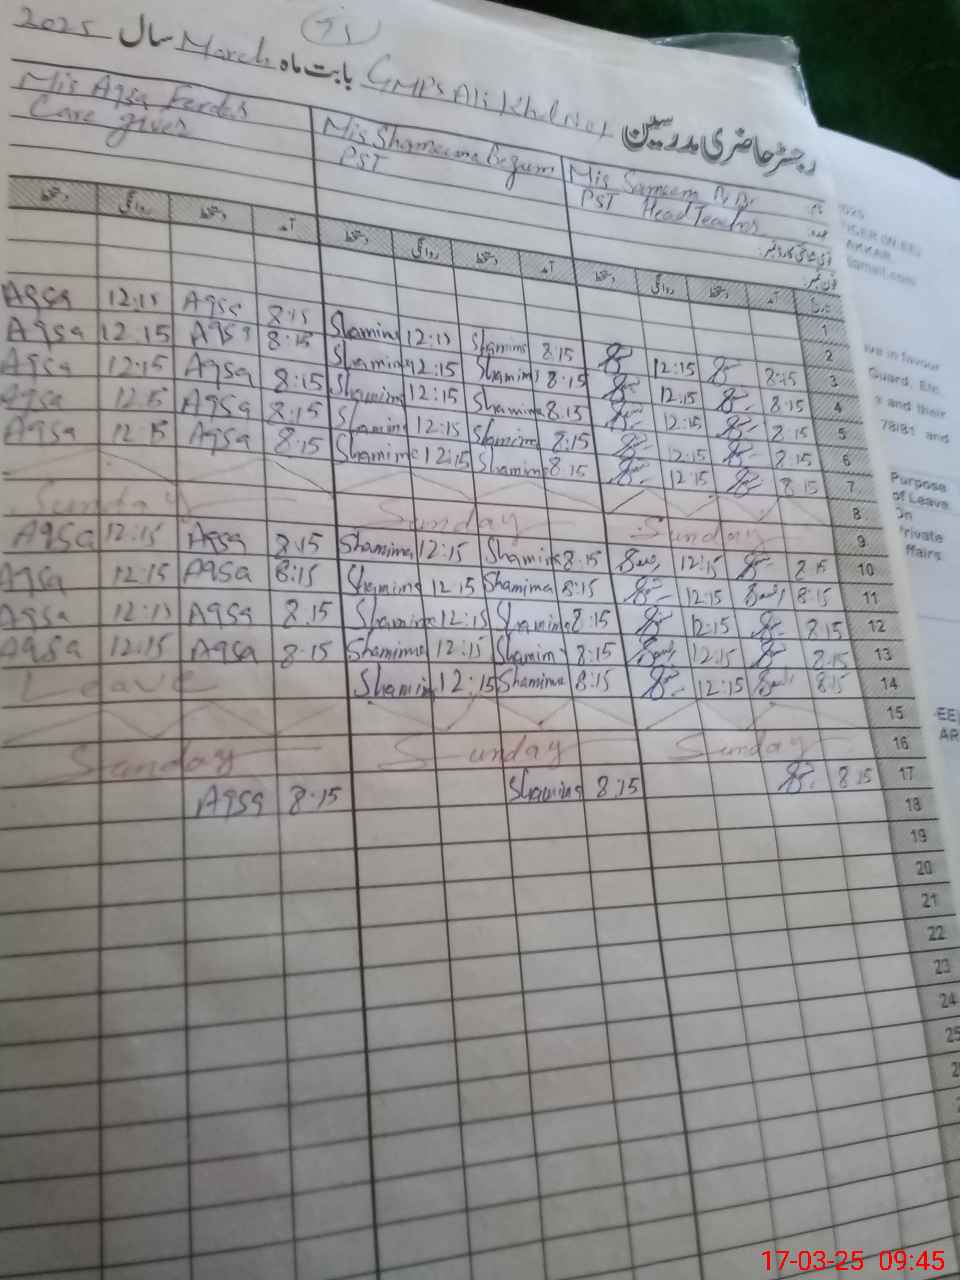 رجسٹر حاضری مدرسین GMPS Ali Khel No1 بابت ماہ March سال 2025
Mis Sameem Bi Bi
PST Head Teacher
Mis Shameema Begum
PST
Mis Aqsa Ferdos
Care giver
آمد دستخط روانگی دستخط آمد دستخط روانگی دستخط آمد دستخط روانگی دستخط
1
2
Aqsa 12:15 Aqsa 8:15 Shamima 12:15 Shamima 8:15 12:15 8:15 3
Aqsa 12:15 Aqsa 8:15 Shamima 12:15 Shamima 8:15 12:15 8:15 4
Aqsa 12:15 Aqsa 8:15 Shamima 12:15 Shamima 8:15 12:15 8:15 5
Aqsa 12:15 Aqsa 8:15 Shamima 12:15 Shamima 8:15 12:15 8:15 6
Aqsa 12:15 Aqsa 8:15 Shamima 12:15 Shamima 8:15 12:15 8:15 7
8
Sunday Sunday Sunday 9
Aqsa 12:15 Aqsa 8:15 Shamima 12:15 Shamima 8:15 12:15 8:15 10
Aqsa 12:15 Aqsa 8:15 Shamima 12:15 Shamima 8:15 12:15 8:15 11
Aqsa 12:15 Aqsa 8:15 Shamima 12:15 Shamima 8:15 12:15 8:15 12
Aqsa 12:15 Aqsa 8:15 Shamima 12:15 Shamima 8:15 12:15 8:15 13
Leave Shamima 12:15 Shamima 8:15 12:15 8:15 14
15
Sunday Sunday Sunday 16
Aqsa 8:15 Shamima 8:15 8:15 17
18
19
20
21
22
23
24
25
2025
TIGER ON EEJ
AKKAR
@gmail.com
ive in favour
Guard, Etc
and their
78181 and
Purpose
of Leave
On
Private
ffairs
EE
AR
17-03-25 09:45